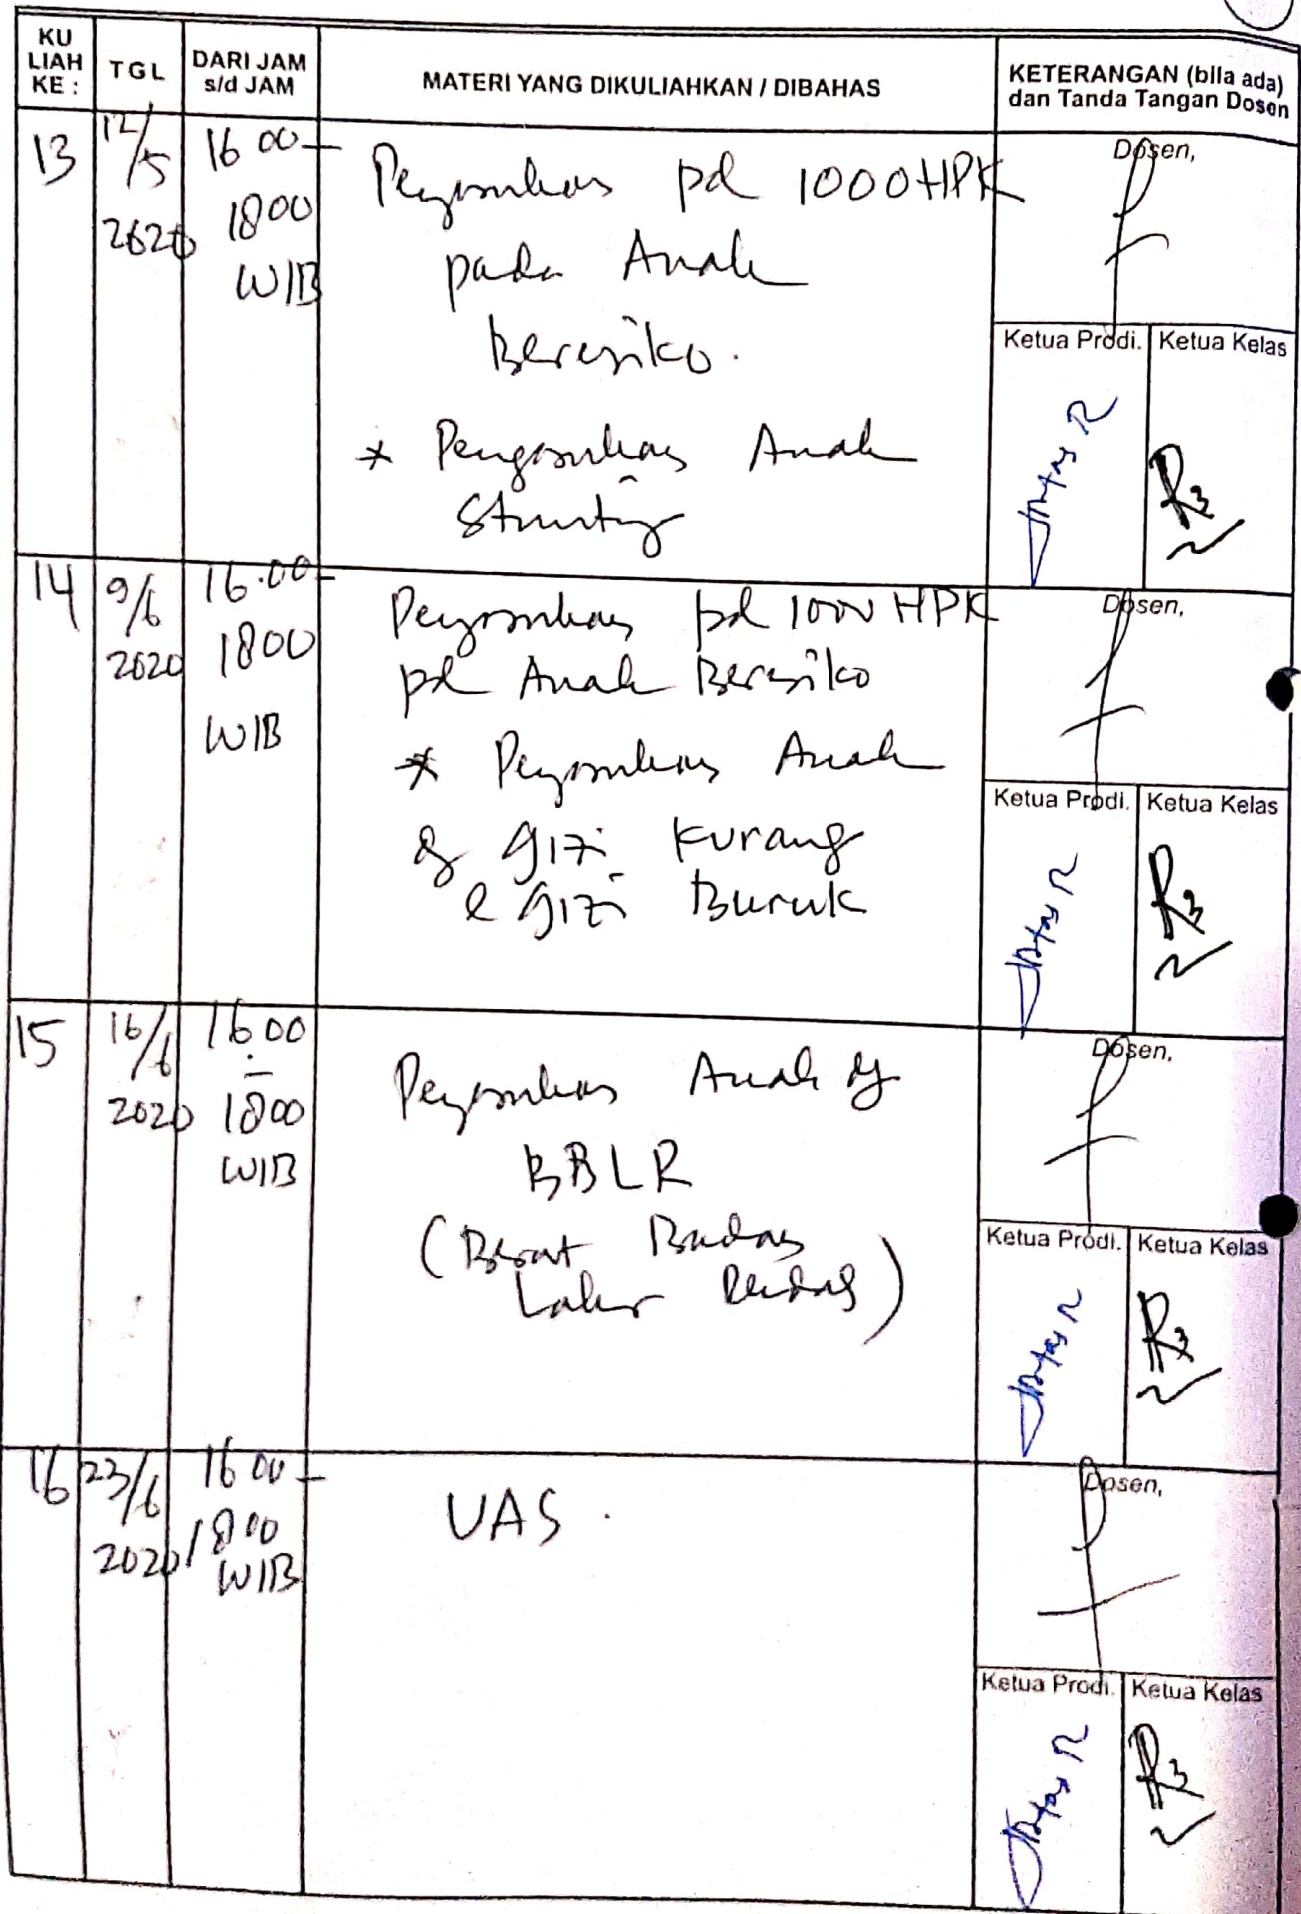 KU LIAH KE :
TGL
DARI JAM s/d JAM
MATERI YANG DIKULIAHKAN / DIBAHAS
KETERANGAN (bila ada) dan Tanda Tangan Dosen
13
12/5
2020
16 00 -
1800
WIB
Pengasuhan pd 1000 HPK
pada Anak
Beresiko.
* Pengasuhan Anak
Stunting
Dosen,
Ketua Prodi.
Ketua Kelas
14
9/6
2020
16.00 -
1800
WIB
Pengasuhan pd 1000 HPK
pd Anak Beresiko
* Pengasuhan Anak
dg gizi kurang
& gizi Buruk
Dosen,
Ketua Prodi.
Ketua Kelas
15
16/6
2020
16 00
-
1800
WIB
Pengasuhan Anak dg
BBLR
(Berat Badan
Lahir Rendah)
Dosen,
Ketua Prodi.
Ketua Kelas
16
23/6
2020
16 00 -
1800
WIB
UAS.
Dosen,
Ketua Prodi.
Ketua Kelas